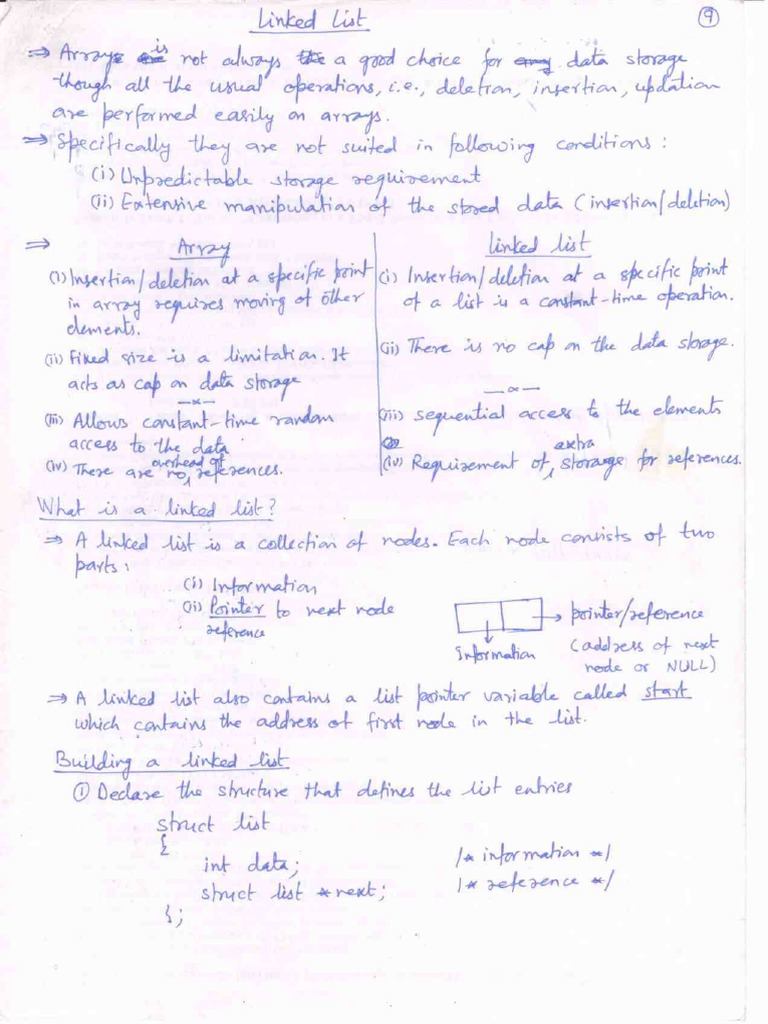 Linked List
9
⇒ Array is not always a good choice for data storage
though all the usual operations, i.e., deletion, insertion, updation
are performed easily on arrays.
⇒ Specifically they are not suited in following conditions :
(i) Unpredictable storage requirement
(ii) Extensive manipulation of the stored data (insertion/deletion)
⇒ Array
(i) Insertion/deletion at a specific point
in array requires moving of other
elements.
(ii) Fixed size is a limitation. It
acts as cap on data storage
—x—
(iii) Allows constant-time random
access to the data
(iv) There are no overhead of references.
linked list
(i) Insertion/deletion at a specific point
of a list is a constant-time operation.
(ii) There is no cap on the data storage.
—x—
(iii) sequential access to the elements
(iv) Requirement of extra storage for references.
What is a linked list?
⇒ A linked list is a collection of nodes. Each node consists of two
parts:
(i) Information
(ii) Pointer to next node
reference
Information
pointer/reference
(address of next
node or NULL)
⇒ A linked list also contains a list pointer variable called start
which contains the address of first node in the list.
Building a linked list
① Declare the structure that defines the list entries
struct list
{
int data; /* information */
struct list *next; /* reference */
};